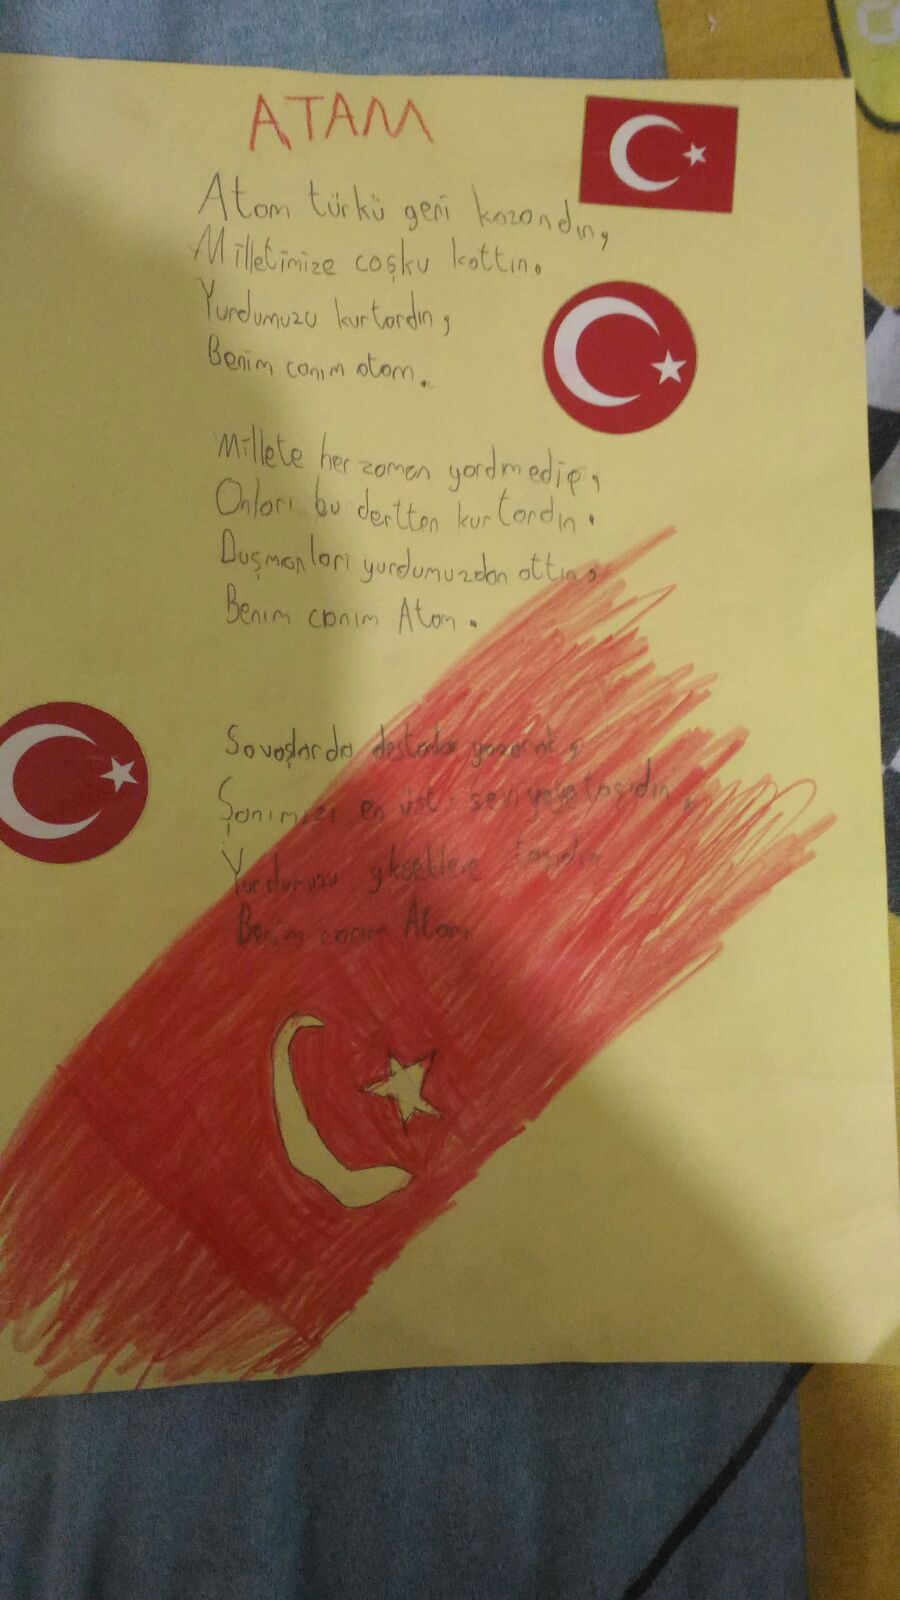 ATAM
Atam türkü geri kazandın,
Milletimize coşku kattın.
Yurdumuzu kurtardın,
Benim canım atam.
Millete her zaman yardmedip,
Onları bu dertten kurtardın.
Duşmanları yurdumuzdan attın,
Benim canım Atam.
Savaşlarda destanlar yazarak,
Şanımızı en üst seviyeye taşıdın,
Yurdumuzu yksektere taşıdın
Benim canım Atam